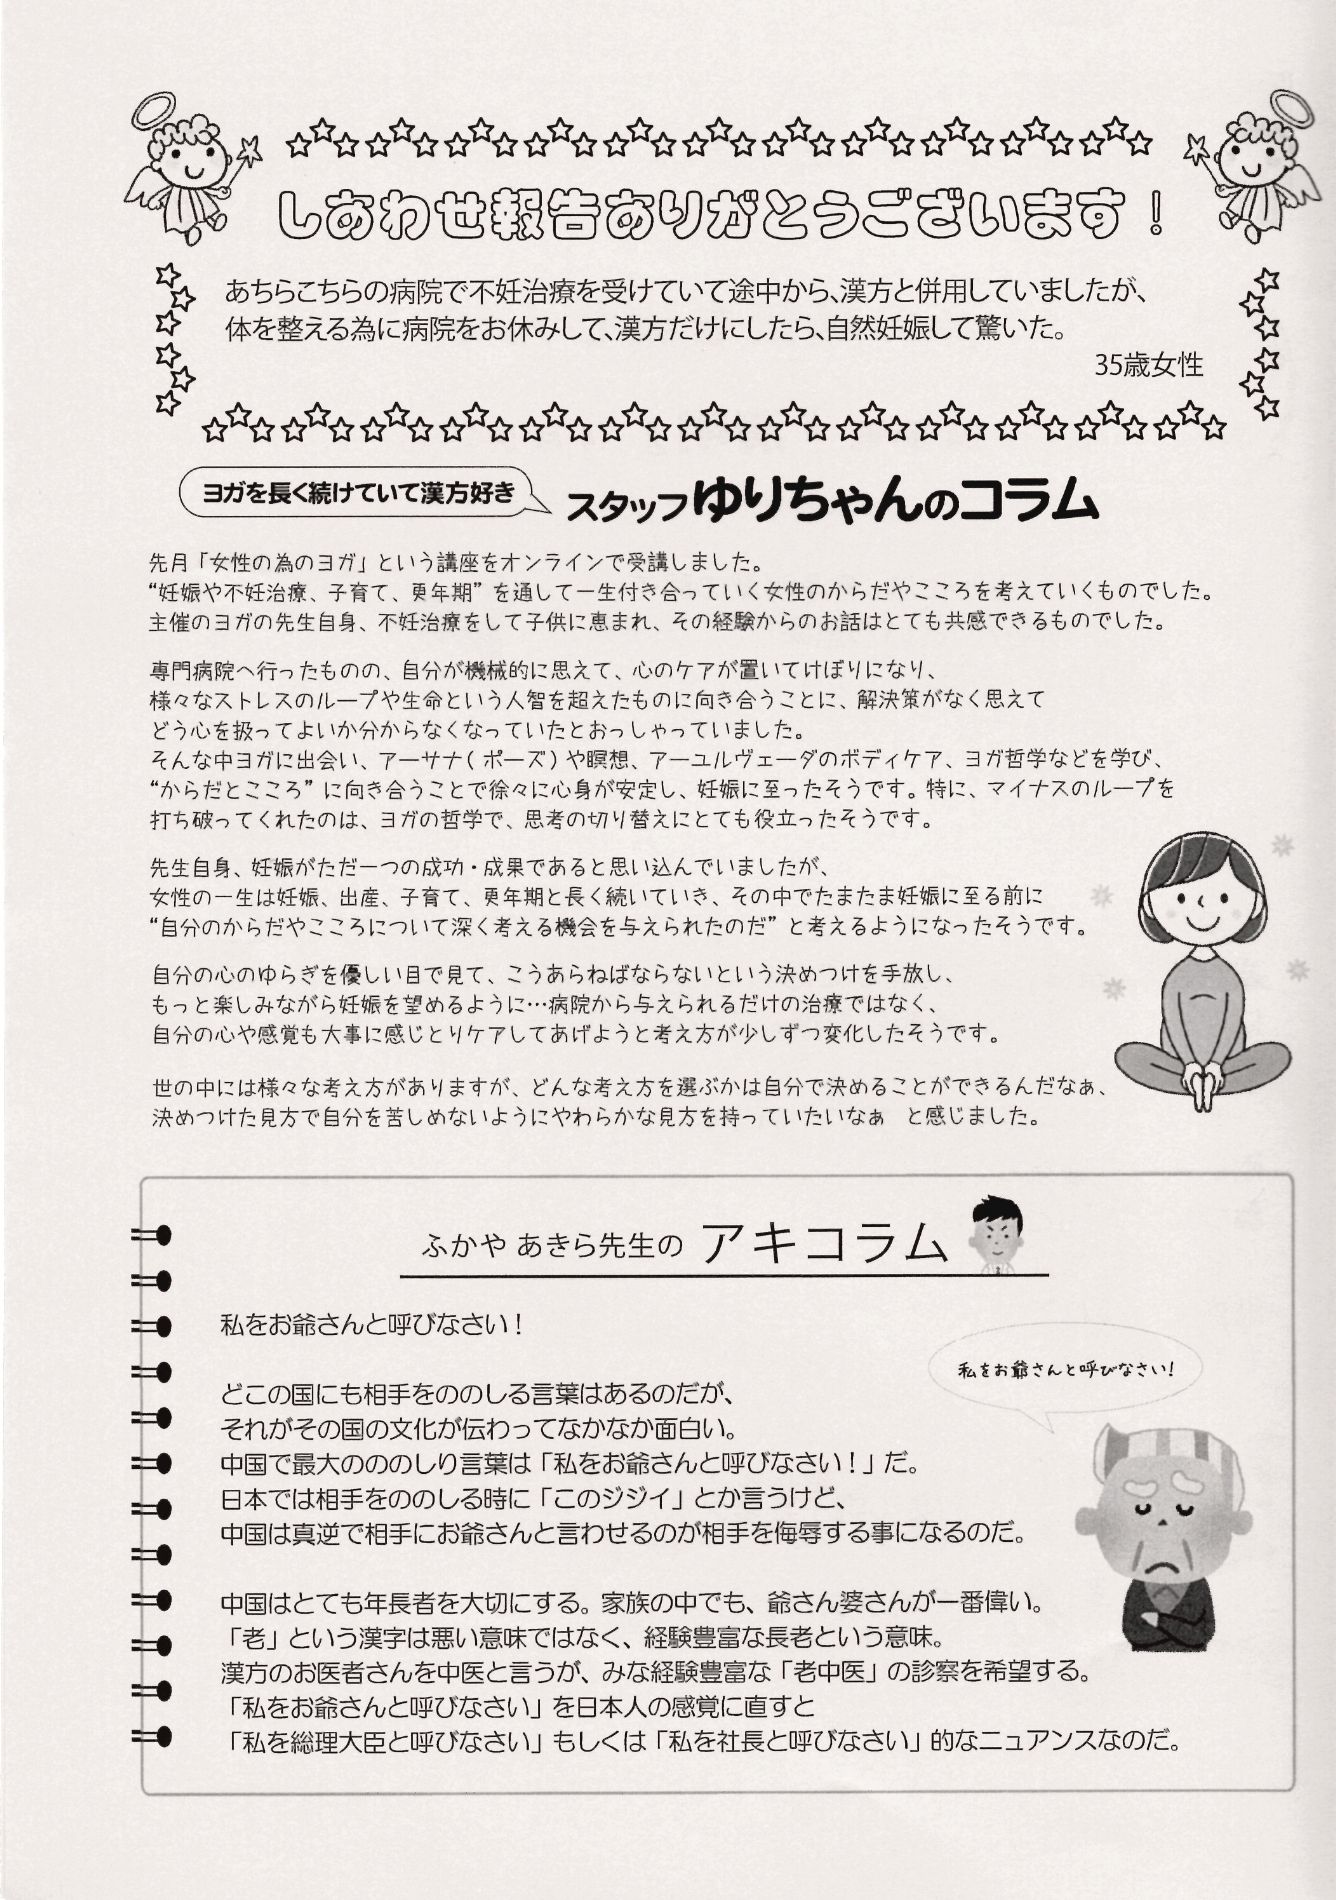 しあわせ報告ありがとうございます！
あちらこちらの病院で不妊治療を受けていて途中から、漢方と併用していましたが、
体を整える為に病院をお休みして、漢方だけにしたら、自然妊娠して驚いた。
35歳女性
ヨガを長く続けていて漢方好き
スタッフゆりちゃんのコラム
先月「女性の為のヨガ」という講座をオンラインで受講しました。
“妊娠や不妊治療、子育て、更年期”を通して一生付き合っていく女性のからだやこころを考えていくものでした。
主催のヨガの先生自身、不妊治療をして子供に恵まれ、その経験からのお話はとても共感できるものでした。
専門病院へ行ったものの、自分が機械的に思えて、心のケアが置いてけぼりになり、
様々なストレスのループや生命という人智を超えたものに向き合うことに、解決策がなく思えて
どう心を扱ってよいか分からなくなっていたとおっしゃっていました。
そんな中ヨガに出会い、アーサナ(ポーズ)や瞑想、アーユルヴェーダのボディケア、ヨガ哲学などを学び、
“からだとこころ”に向き合うことで徐々に心身が安定し、妊娠に至ったそうです。特に、マイナスのループを
打ち破ってくれたのは、ヨガの哲学で、思考の切り替えにとても役立ったそうです。
先生自身、妊娠がただ一つの成功・成果であると思い込んでいましたが、
女性の一生は妊娠、出産、子育て、更年期と長く続いていき、その中でたまたま妊娠に至る前に
“自分のからだやこころについて深く考える機会を与えられたのだ”と考えるようになったそうです。
自分の心のゆらぎを優しい目で見て、こうあらねばならないという決めつけを手放し、
もっと楽しみながら妊娠を望めるように…病院から与えられるだけの治療ではなく、
自分の心や感覚も大事に感じとりケアしてあげようと考え方が少しずつ変化したそうです。
世の中には様々な考え方がありますが、どんな考え方を選ぶかは自分で決めることができるんだなぁ、
決めつけた見方で自分を苦しめないようにやわらかな見方を持っていたいなぁ　と感じました。
ふかや あきら先生の アキコラム
私をお爺さんと呼びなさい！
私をお爺さんと呼びなさい!
どこの国にも相手をののしる言葉はあるのだが、
それがその国の文化が伝わってなかなか面白い。
中国で最大のののしり言葉は「私をお爺さんと呼びなさい！」だ。
日本では相手をののしる時に「このジジイ」とか言うけど、
中国は真逆で相手にお爺さんと言わせるのが相手を侮辱する事になるのだ。
中国はとても年長者を大切にする。家族の中でも、爺さん婆さんが一番偉い。
「老」という漢字は悪い意味ではなく、経験豊富な長老という意味。
漢方のお医者さんを中医と言うが、みな経験豊富な「老中医」の診察を希望する。
「私をお爺さんと呼びなさい」を日本人の感覚に直すと
「私を総理大臣と呼びなさい」もしくは「私を社長と呼びなさい」的なニュアンスなのだ。